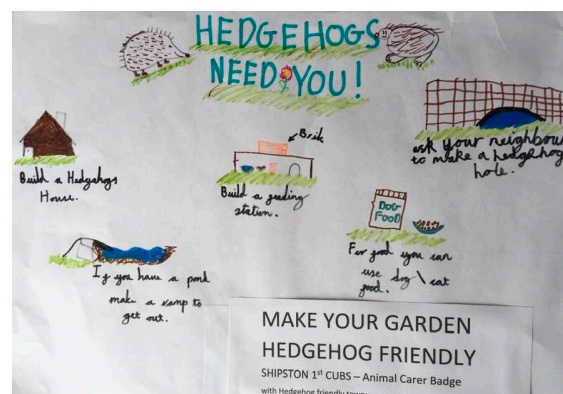 HEDGEHOGS
NEED YOU!
Brik
Build a Hedgehogs
House.
Build a feeding
station.
ask your neighbour
to make a hedgehog
hole.
DOG
FOOD
For food you can
use dog \ cat
food.
If you have a pond
make a ramp to
get out.
MAKE YOUR GARDEN
HEDGEHOG FRIENDLY
SHIPSTON 1st CUBS – Animal Carer Badge
with Hedgehog friendly